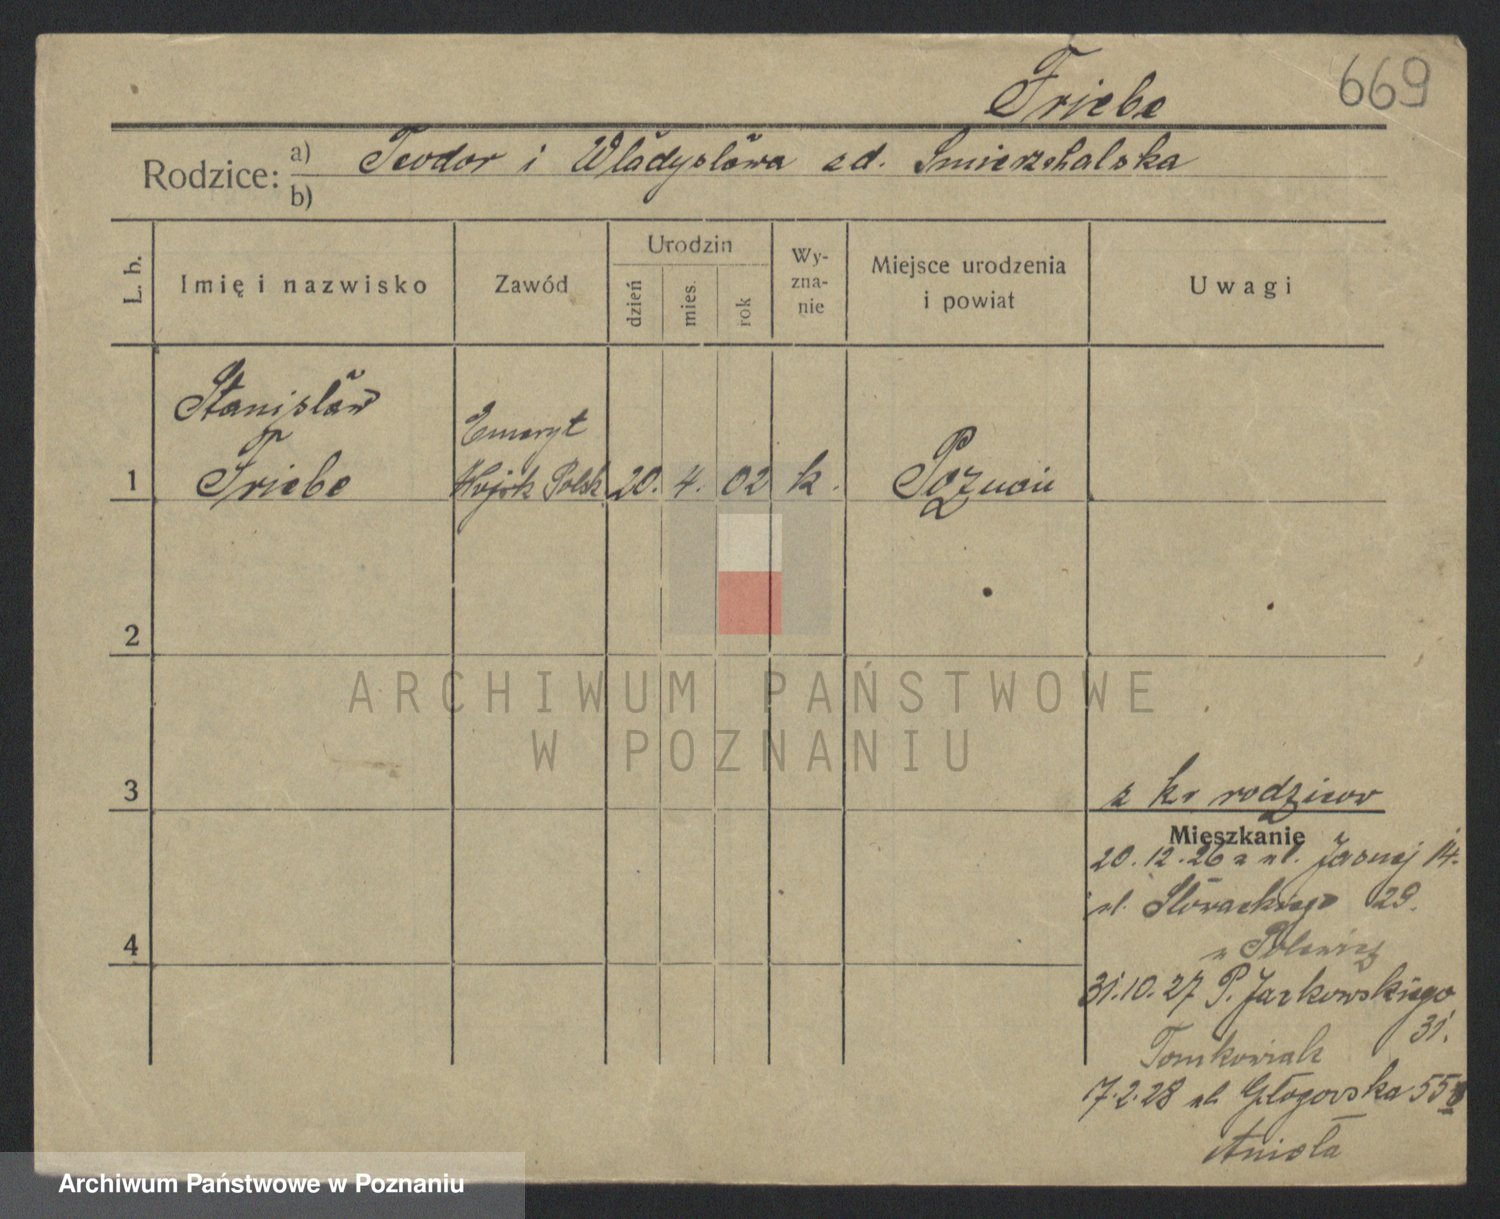 Friebe
669
Rodzice: a) Teodor i Władysława zd. Smierzchalska
b)
L. b.
Imię i nazwisko
Zawód
Urodzin
dzień
mies.
rok
Wy-
zna-
nie
Miejsce urodzenia
i powiat
Uwagi
Stanisław
Emeryt
1 Friebe Wojsk Polsk 20. 4. 02 k. Poznań
2
ARCHIWUM PAŃSTWOWE
W POZNANIU
3
z kr rodziców
Mieszkanie
20.12.26 z ul. Jasnej 14.
ul. Słowackiego 29.
u
31.10.27 P. Jackowskiego
31.
Tomkowiak
7.2.28 ul. Głogowska 55
Anioła
4
Archiwum Państwowe w Poznaniu